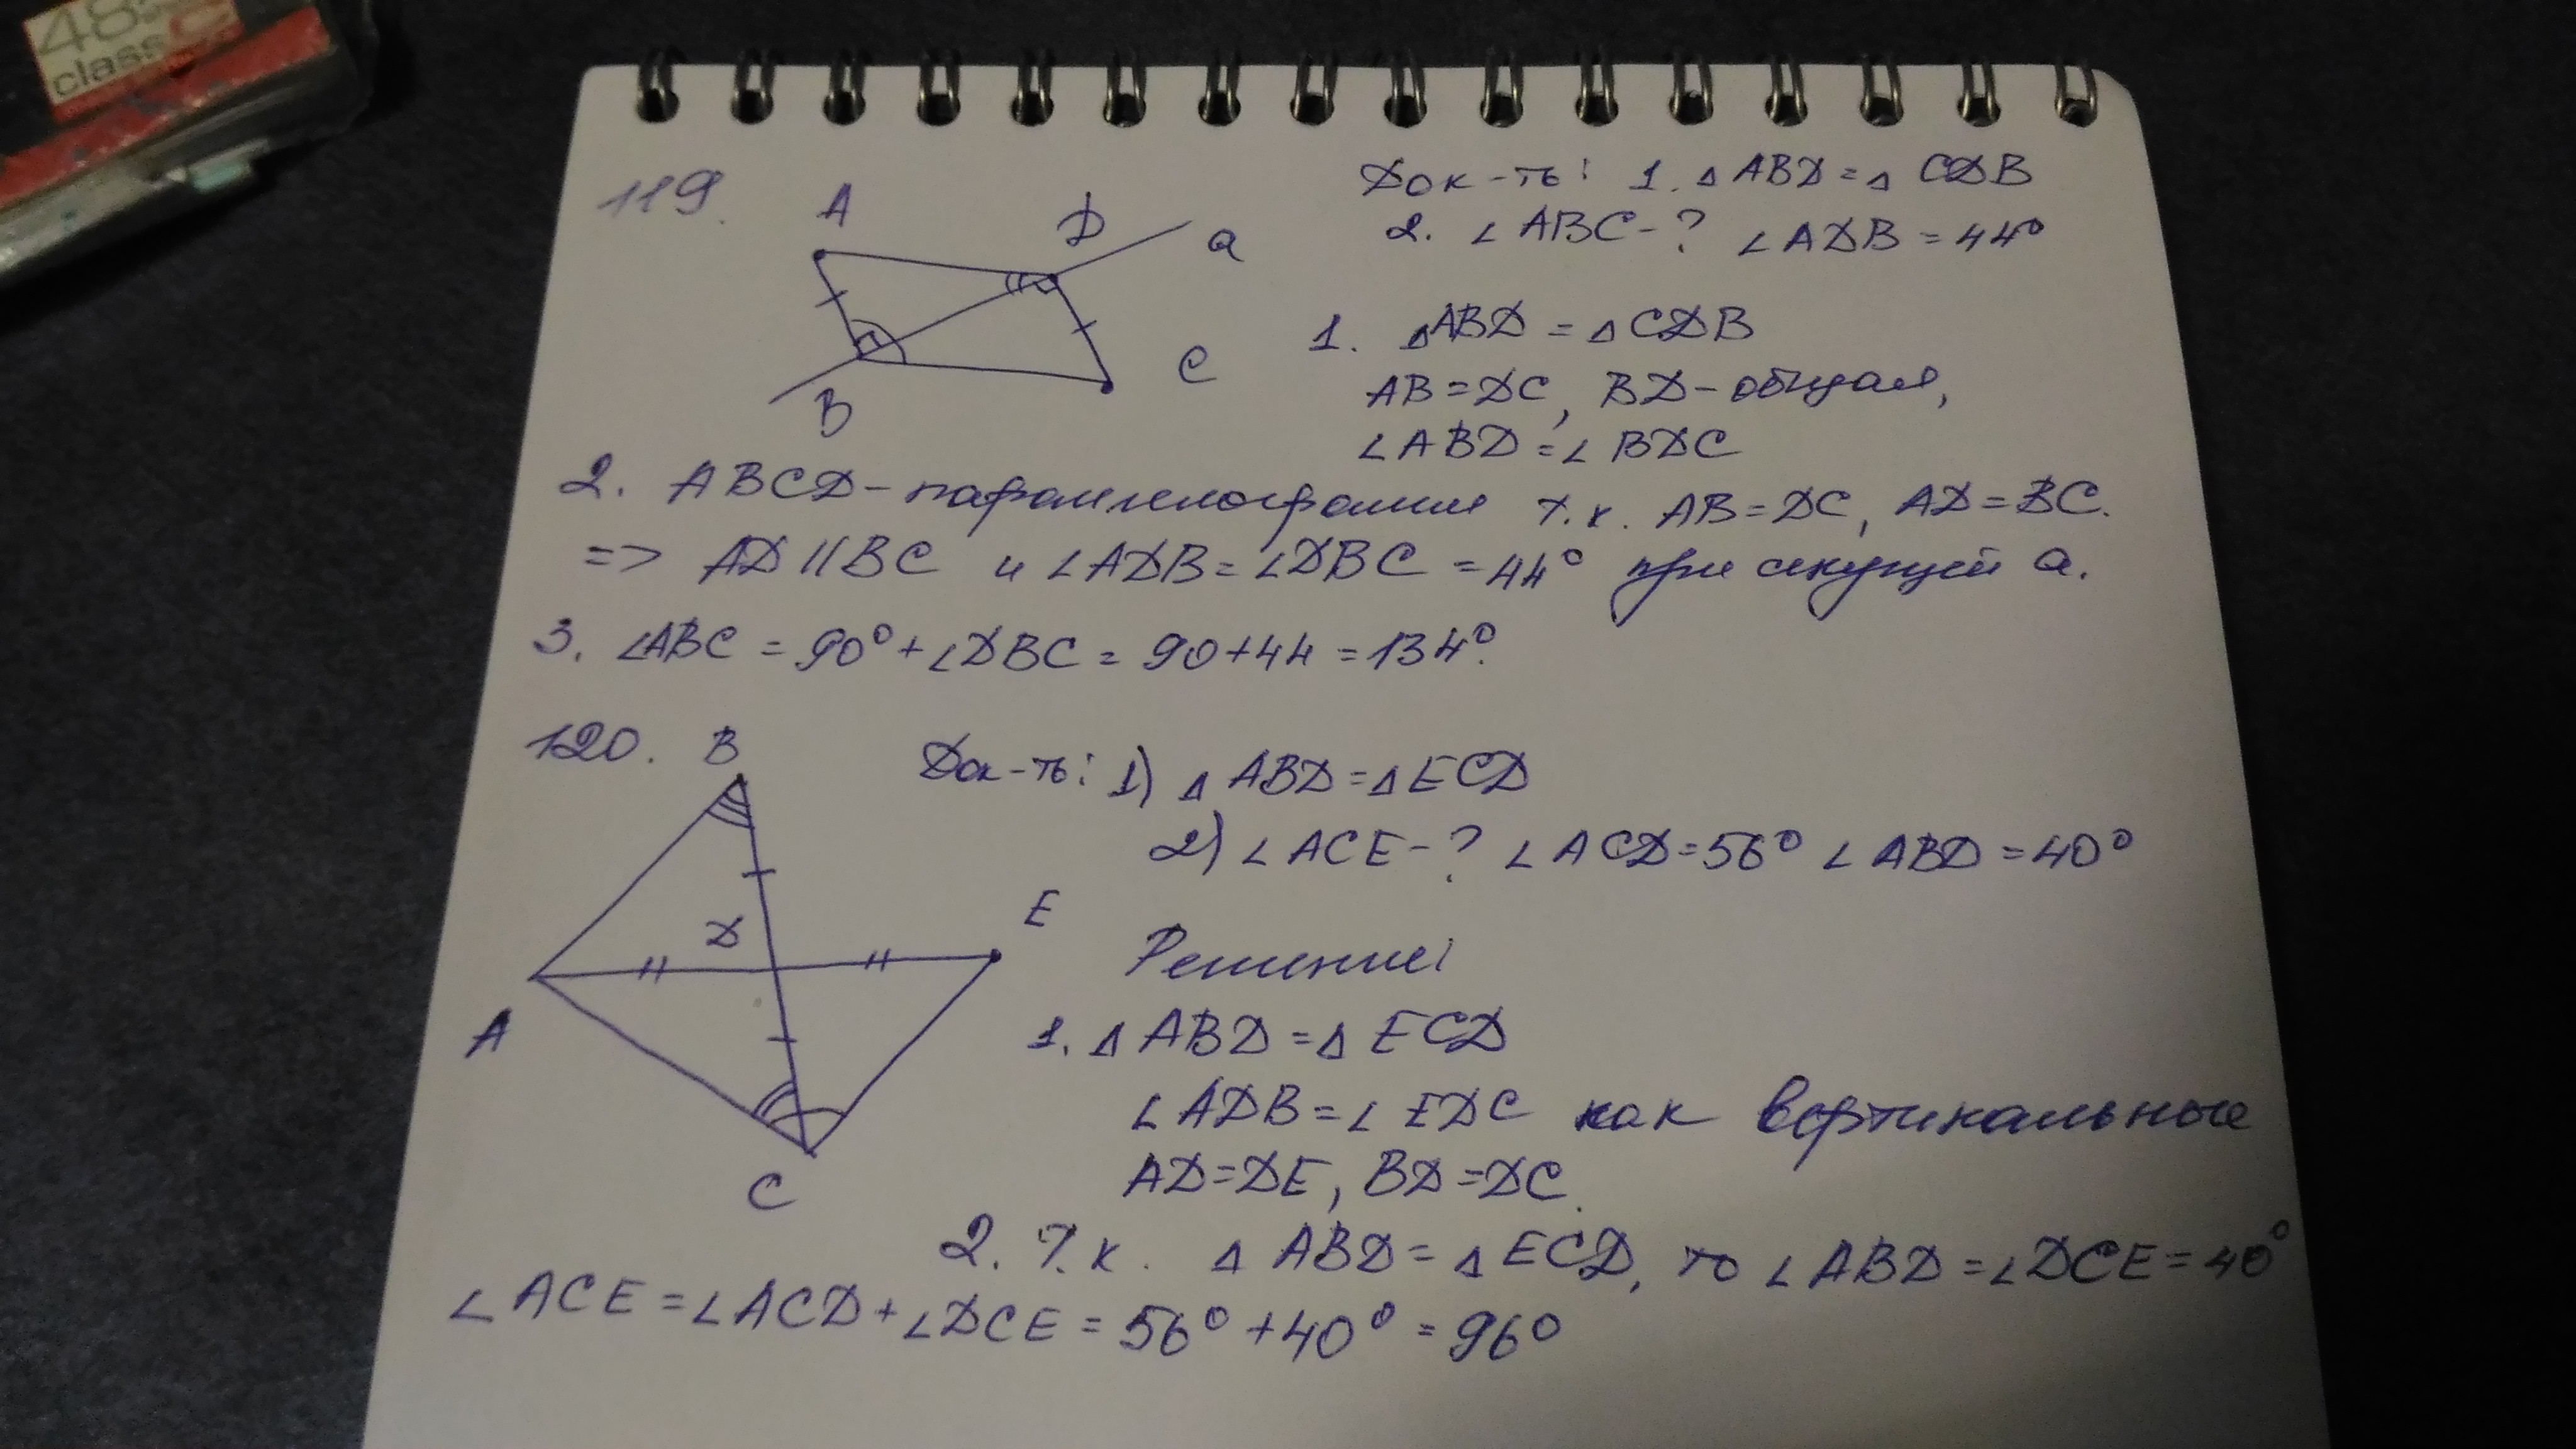 48
classic
119.
A
D
a
B
C
Док-ть: 1. △ ABD = △ CDB
2. ∠ ABC - ? ∠ ADB = 44°
1. △ ABD = △ CDB
AB = DC, BD - общая,
∠ ABD = ∠ BDC
2. ABCD - параллелограмм т.к. AB = DC, AD = BC.
=> AD || BC и ∠ADB = ∠DBC = 44° при секущей a.
3. ∠ABC = 90° + ∠DBC = 90 + 44 = 134°.
120.
B
D
E
A
C
Док-ть: 1) △ ABD = △ ECD
2) ∠ ACE - ? ∠ ACD = 56° ∠ ABD = 40°
Решение:
1. △ ABD = △ ECD
∠ ADB = ∠ EDC как вертикальные
AD = DE, BD = DC.
2. Т.к. △ ABD = △ ECD, то ∠ ABD = ∠ DCE = 40°
∠ ACE = ∠ ACD + ∠ DCE = 56° + 40° = 96°